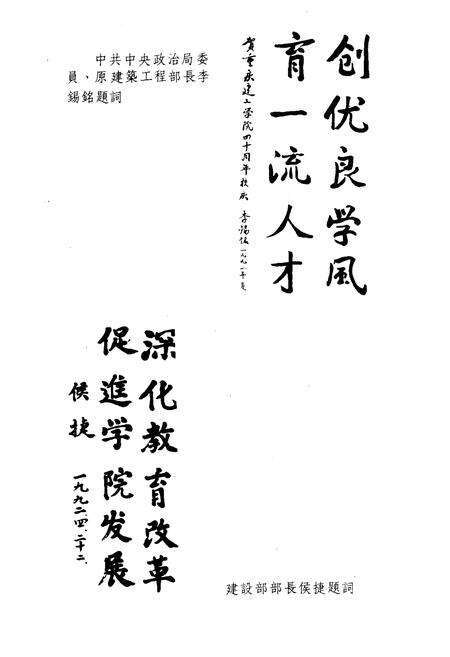 中共中央政治局委
員、原建築工程部長李
錫銘題詞
创优良学風
育一流人才
賀重庆建工学院四十周年校庆 李锡铭
深化教育改革
促進学院发展
侯捷
一九九二、四、二十二、
建設部部長侯捷題詞